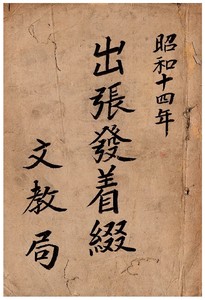 昭和十四年
出張發着綴
文教局